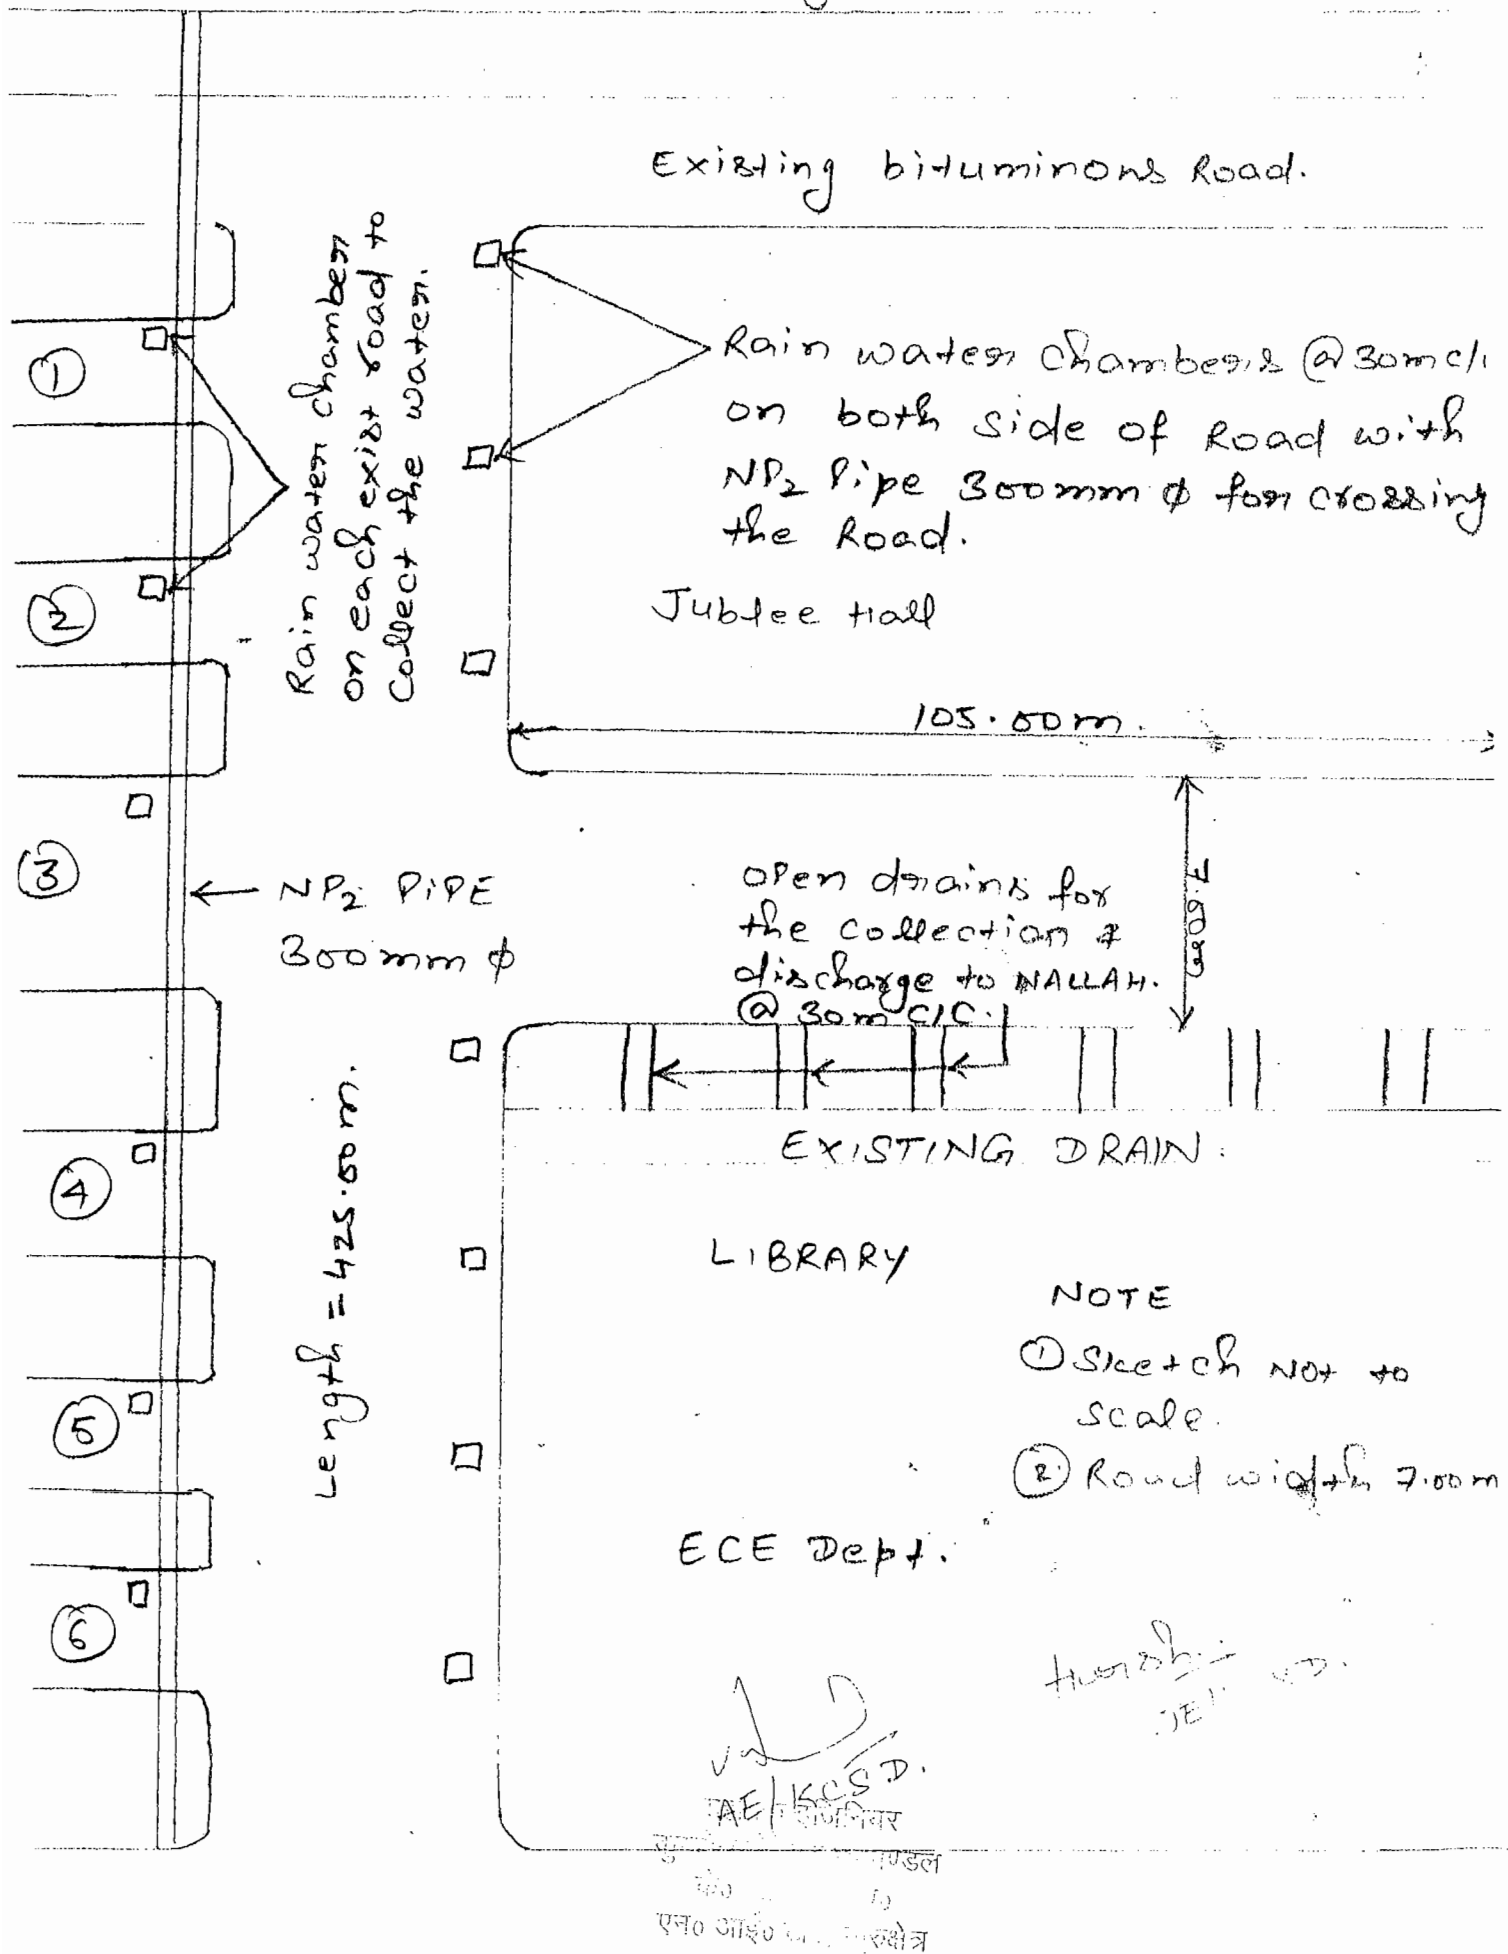 Existing bituminous Road.
Rain water chamber
on each exist road to
collect the water.
Rain water chambers @ 30m c/
on both side of Road with
NP2 Pipe 300mm ϕ for crossing
the Road.
Jublee Hall
105.00m.
1
2
3
NP2 PIPE
300mm ϕ
open drains for
the collection &
discharge to NALLAH.
@ 30m C/C.
7.60m
EXISTING DRAIN.
4
5
6
Length = 425.00m.
LIBRARY
NOTE
① Sketch Not to
scale.
② Road width 7.00m
ECE Dept.
AE/KCSD.
एन० आई०